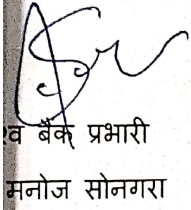 बैंक प्रभारी
मनोज सोनगरा